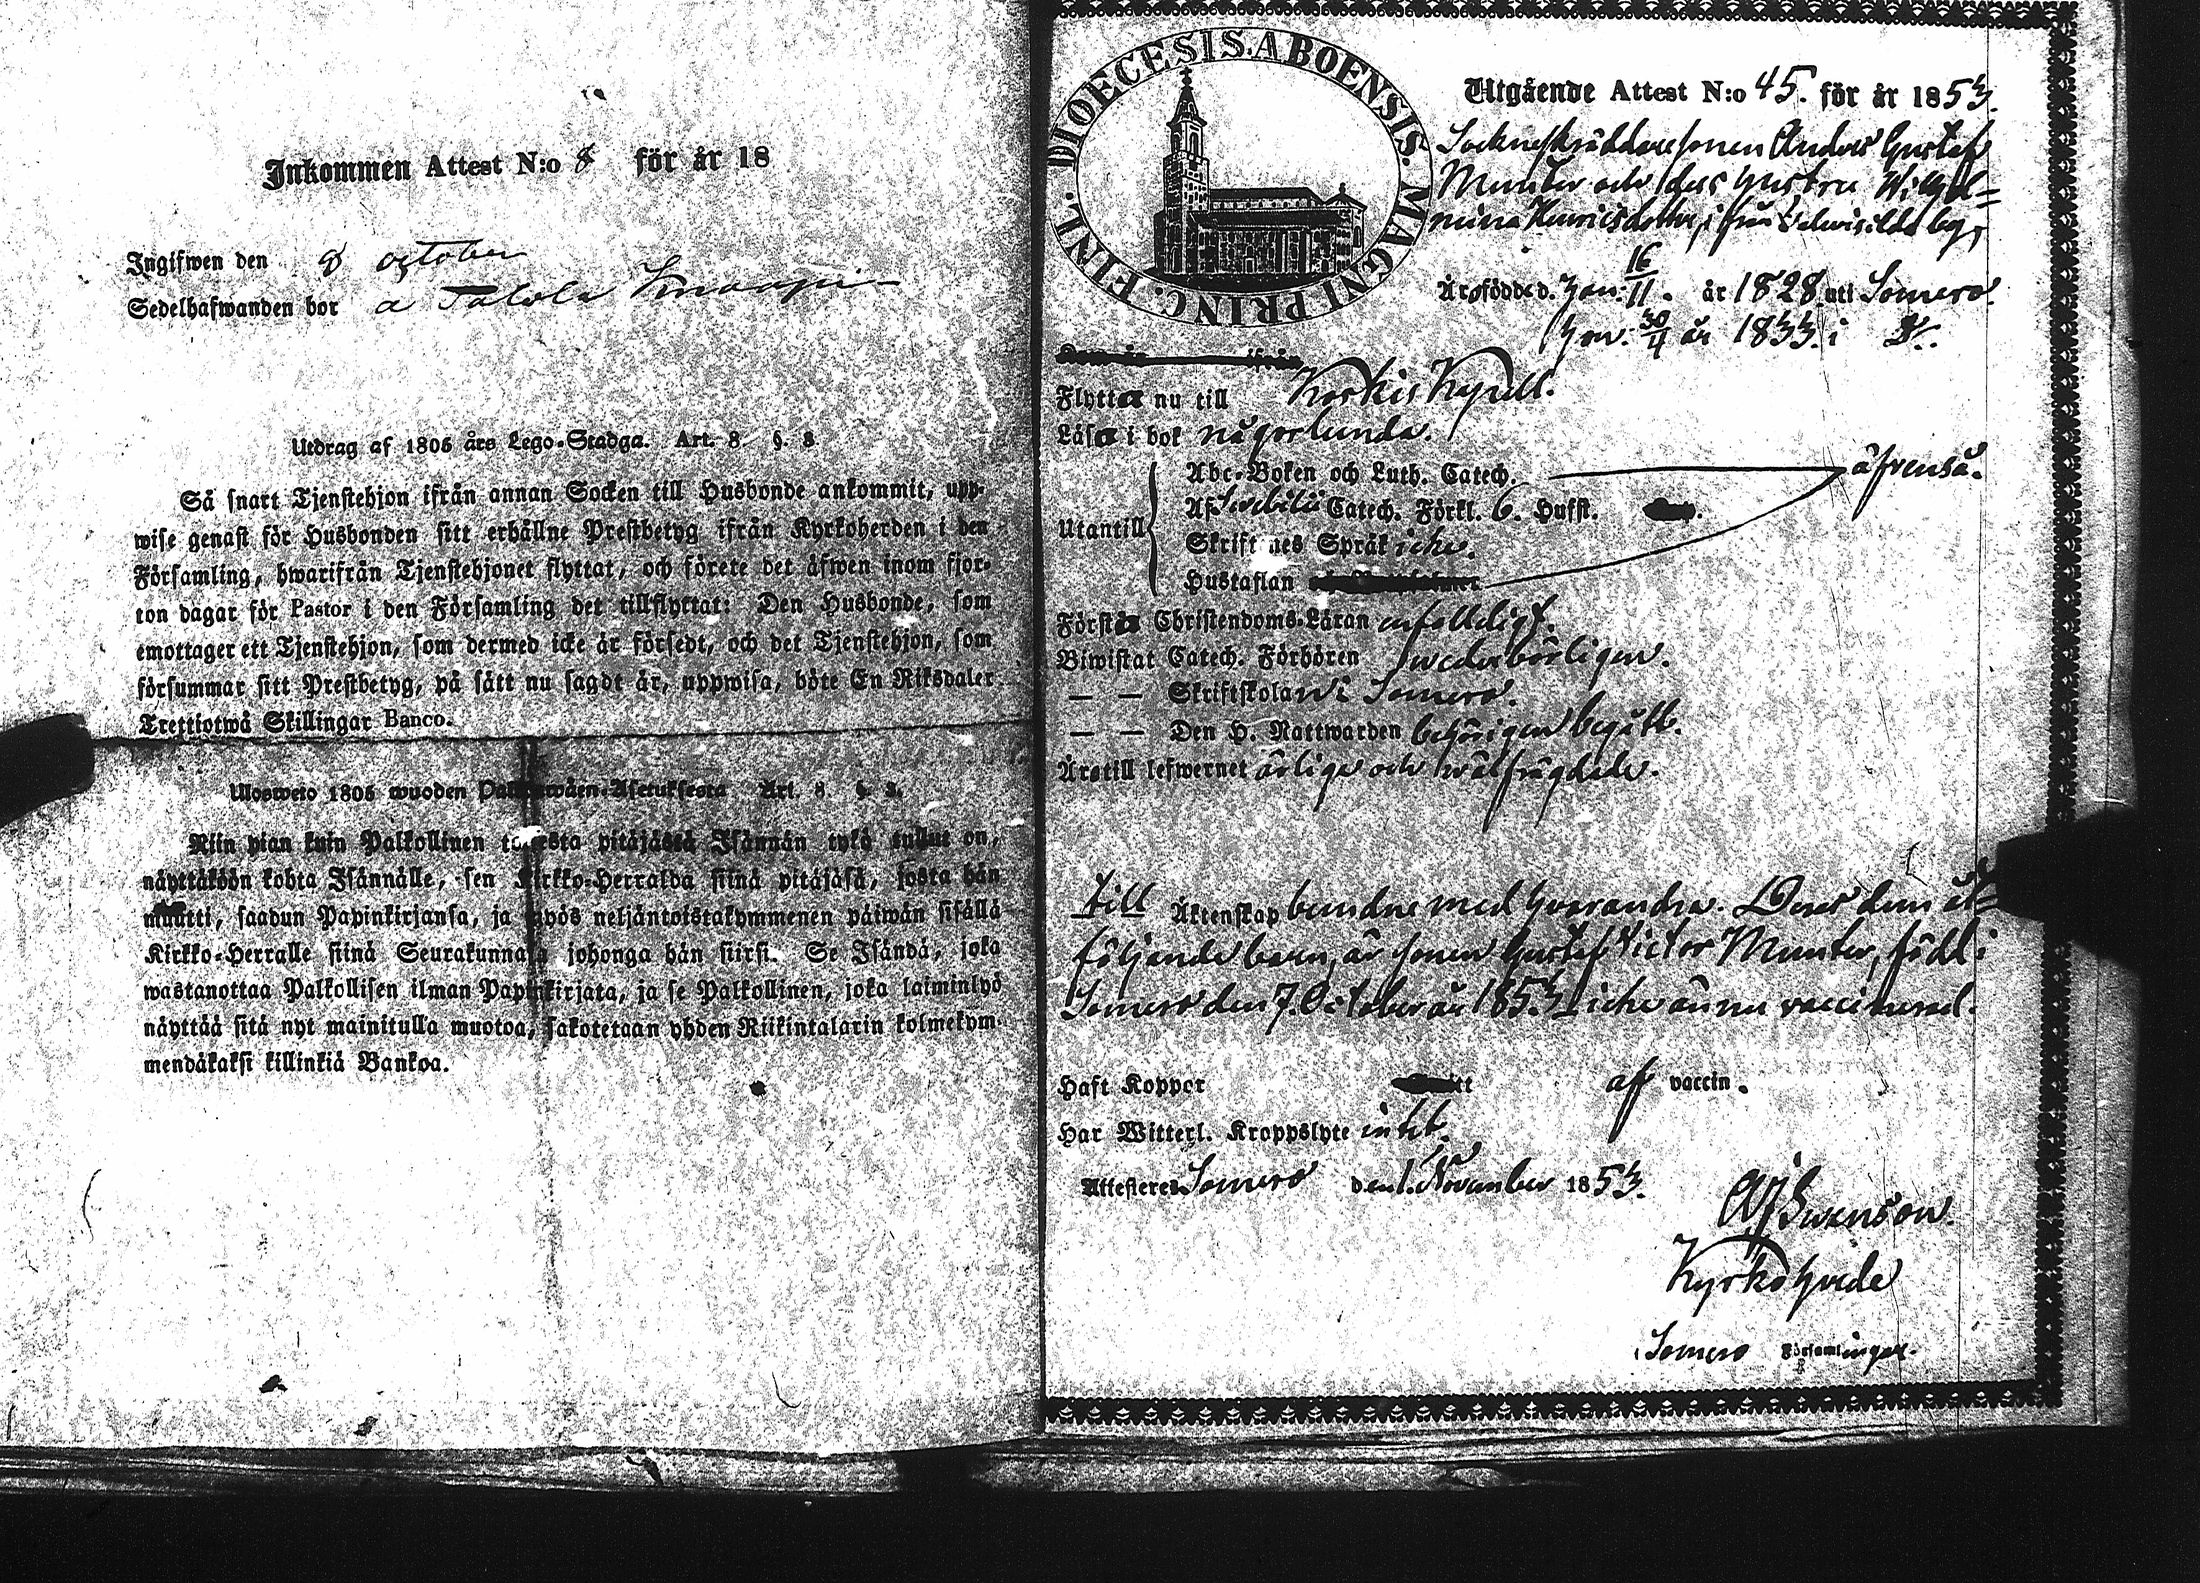 Inkommen Attest N:o 8 för år 18
Ingifwen den 8 october
Sedelhafwanden bor å Talola Knaapi
Utdrag af 1805 års Lego-Stadga. Art. 8 §. 3
Så snart Tjenstehjon ifrån annan Socken till Husbonde ankommit, upp-
wise genast för Husbonden sitt erhållne Prestbetyg ifrån Kyrkoherden i den
Församling, hwarifrån Tjenstehjonet flyttat, och förete det äfwen inom fjor-
ton dagar för Pastor i den Församling det tillflyttat: Den Husbonde, som
emottager ett Tjenstehjon, som dermed icke är försedt, och det Tjenstehjon, som
försummar sitt Prestbetyg, på sätt nu sagdt är, uppwisa, böte En Riksdaler
Trettiotwå Skillingar Banco.
Ulosweto 1805 wuoden Asetuksesta Art. 8 §. 3.
Niin pian kuin Palkollinen toisesta pitäjästä Isännän tykö tullut on,
näyttäköön kohta Isännälle, sen Kirkko-Herralda siinä pitäjäsä, josta hän
muutti, saadun Papinkirjansa, ja myös neljäntoistakymmenen päiwän sisällä
Kirkko-Herralle siinä Seurakunnasa johonga hän siirsi. Se Isändä, joka
wastanottaa Palkollisen ilman Papinkirjata, ja se Palkollinen, joka laiminlyö
näyttää sitä nyt mainitulla muotoa, sakotetaan yhden Riikintalarin kolmekym-
mendäkaksi killinkiä Bankoa.
DIOECESIS. ABOENSIS. MAGNI PRINC. FINL.
Utgående Attest N:o 45. för år 1853.
Sockneskräddaresonen Anders Gustaf
Munter och dess hustru Wilhel=
mina Henricsdotter, ifrån by,
Äro födde d. han 16/11. år 1828 uti Somero.
hon 30/4 år 1833. i D:o.
Flytta nu till Koskis Kapell.
Läsa i bok någorlunda.
Utantill
Abc-Boken och Luth. Catech. äfvenså.
Af Svebilii Catech. Förkl. 6. Hufst.
Skriftenes Språk icke.
Hustaflan
Förstå Christendoms-Läran enfaldigt.
Biwistat Catech. Förhören wederbörligen.
— — Skriftskolan i Somero.
— — Den H. Nattwarden behörigen begått.
Äro till lefwernet ärlige och wälfrägdade.
till Äktenskap bundne med hvarandra. Deras dem åt=
följande barn, är sonen Gustaf Victor Munter, född i
Somero den 7. October år 1853 icke ännu vaccinerad.
Haft Koppor af vaccin.
Har Witterl. Kroppslyte intet.
Attesteres Somero den 1. November 1853.
Swenson.
Kyrkoherde
i Somero Församlingar.